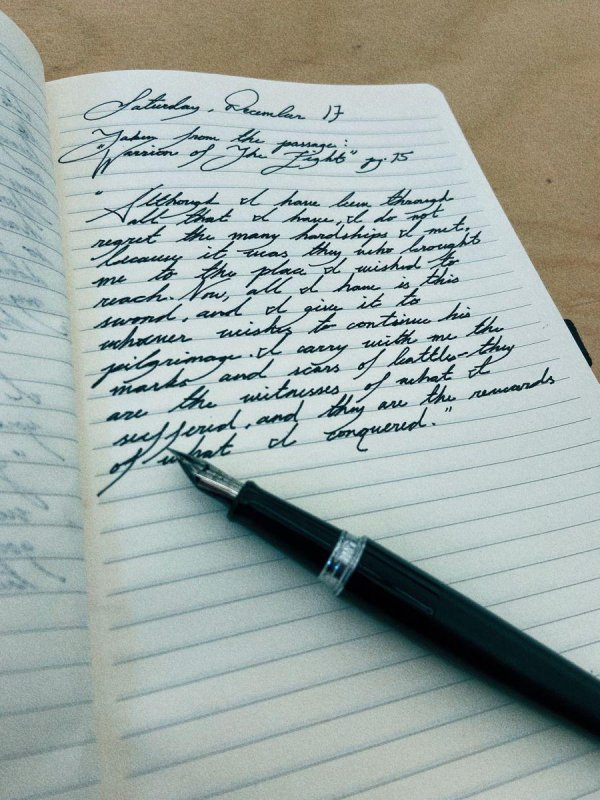 Saturday, December 17
Taken from the passage:
"Warrior of The Light" pg. 75
"Although I have been through
all that I have, I do not
regret the many hardships I met,
because it was they who brought
me to the place I wished to
reach. Now, all I have is this
sword, and I give it to
whoever wishes to continue his
pilgrimage. I carry with me the
marks and scars of battles - they
are the witnesses of what I
suffered, and they are the rewards
of what I conquered."